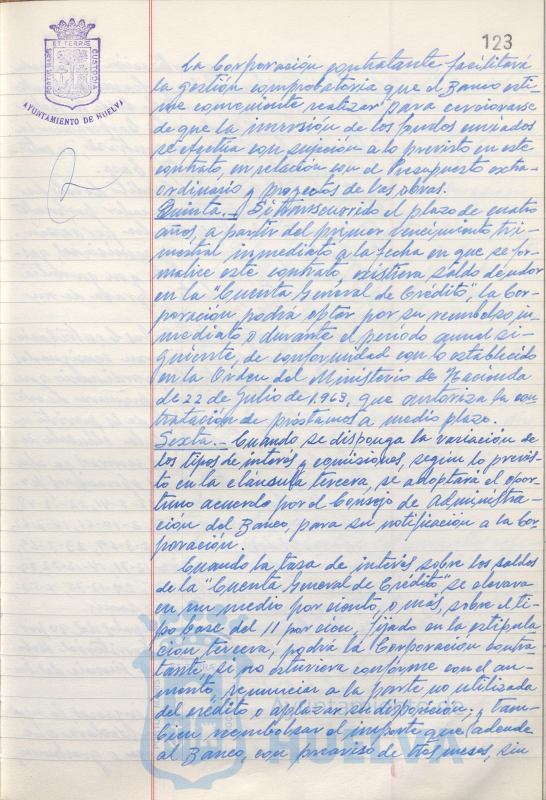 123
PORTUS MARIS ET TERRAE CUSTODIA
AYUNTAMIENTO DE HUELVA
La Corporación contratante facilitará
la gestión comprobatoria que el Banco esti-
me conveniente realizar para cerciorarse
de que la inversión de los fondos enviados
se efectúa con sujeción a lo previsto en este
contrato, en relación con el Presupuesto extra-
ordinario y proyectos de las obras.
Quinta.- Si transcurrido el plazo de cuatro
años, a partir del primer vencimiento tri-
mestral inmediato a la fecha en que se for-
malice este contrato, existiera saldo deudor
en la "Cuenta General de Crédito", la Cor-
poración podrá optar por su reembolso in-
mediato, o durante el período anual si-
guiente, de conformidad con lo establecido
en la Orden del Ministerio de Hacienda
de 22 de Julio de 1.963, que autoriza la con-
tratación de préstamos a medio plazo.
Sexta.- Cuando se disponga la variación de
los tipos de interés y comisiones, según lo previs-
to en la cláusula tercera, se adoptará el opor-
tuno acuerdo por el Consejo de Administra-
ción del Banco, para su notificación a la Cor-
poración.
Cuando la tasa de interés sobre los saldos
de la "Cuenta General de Crédito" se elevara
en un medio por ciento, o más, sobre el ti-
po base del 11 por cien, fijado en la estipula
ción tercera, podrá la Corporación contra-
tante si no estuviera conforme con el au-
mento, renunciar a la parte no utilizada
del crédito o aplazar su disposición; y tam-
bien reembolsar el importe que adeude
al Banco, con preaviso de tres meses, sin